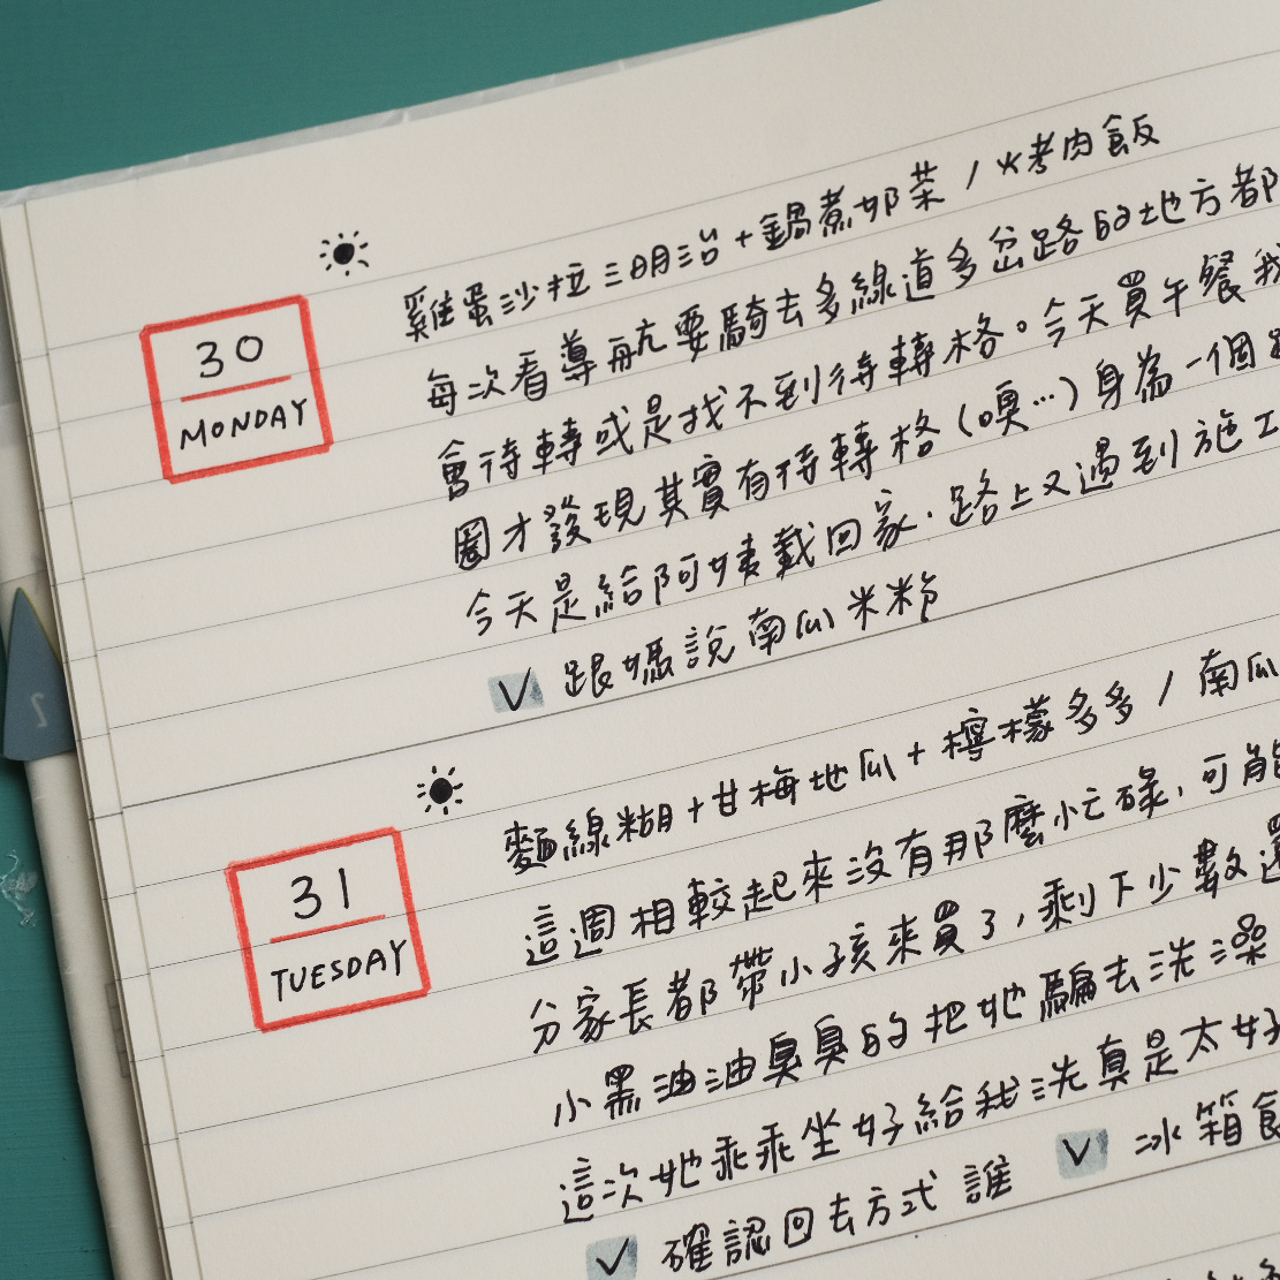 30
MONDAY
雞蛋沙拉三明治+鍋煮奶茶/火烤肉飯
每次看導航要騎去多線道多岔路的地方都
會待轉或是找不到待轉格。今天買午餐我
圈才發現其實有待轉格(噢…)身為一個
今天是給阿姨載回家.路上又遇到施工
跟媽說南瓜米粉
31
TUESDAY
麵線糊+甘梅地瓜+檸檬多多/南瓜
這週相較起來沒有那麼忙碌,可能
分家長都帶小孩來買了,剩下少數還
小黑油油臭臭的把她騙去洗澡
這次她乖乖坐好給我洗真是太好
確認回去方式 誰 冰箱
2